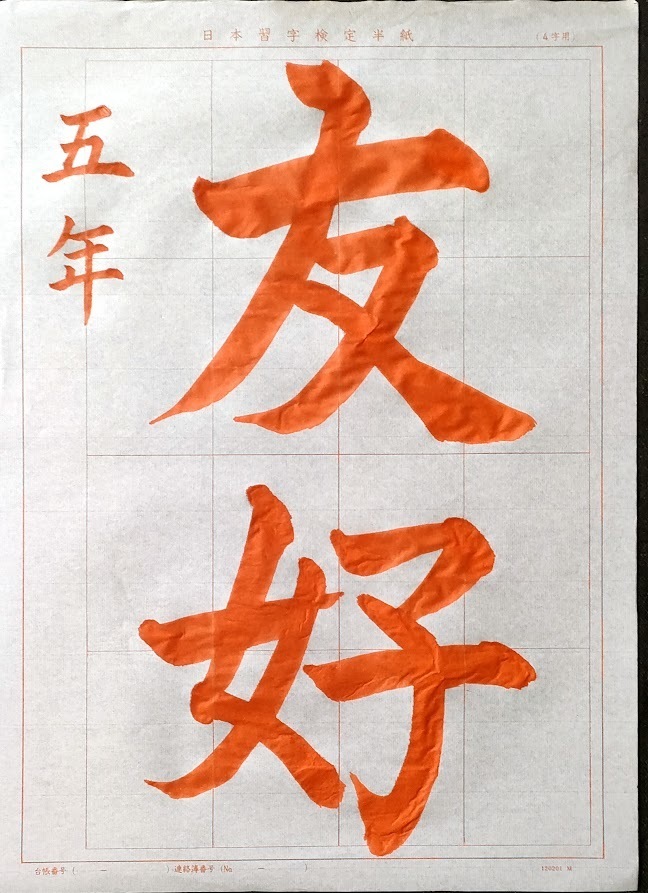 日本習字検定半紙
(4字用)
友好
五年
台帳番号 ( ー ) 連絡簿番号 (No ー )
120201 M